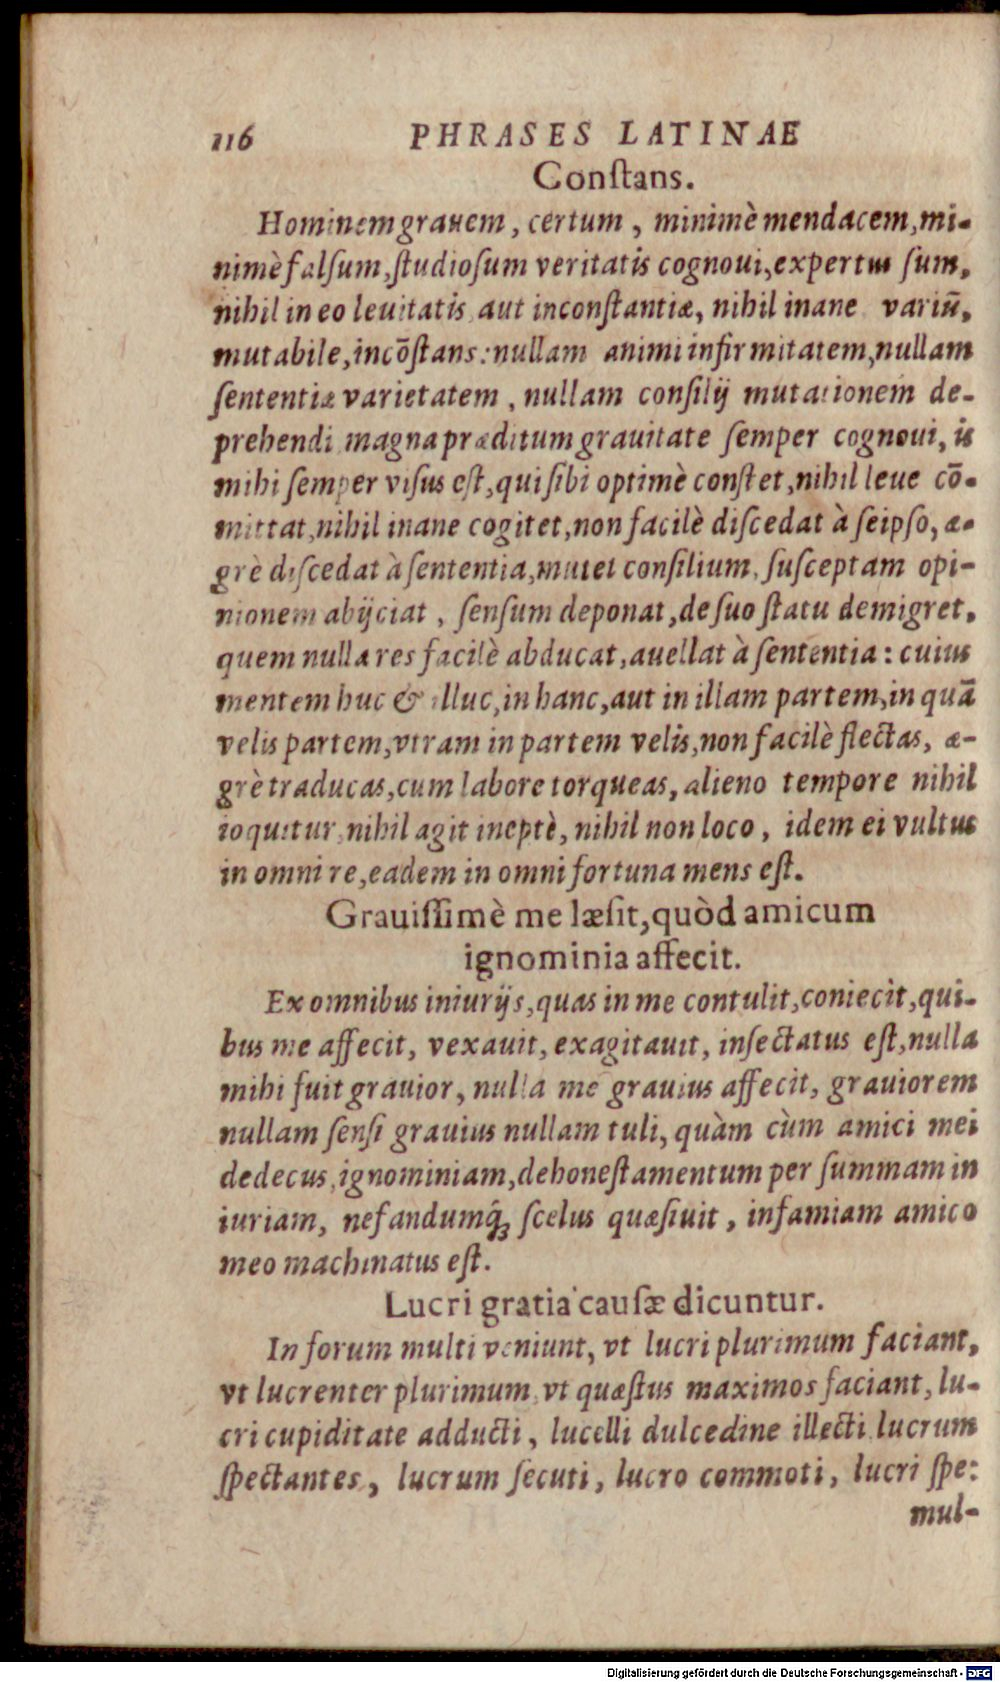 116 PHRASES LATINAE
Conſtans.
Hominem grauem, certum, minimè mendacem, mi-
nimè falſum, ſtudioſum veritatis cognoui, expertus ſum,
nihil in eo leuitatis aut inconſtantiæ, nihil inane variũ,
mutabile, incõſtans: nullam animi infirmitatem, nullam
ſententiæ varietatem, nullam conſilij mutationem de-
prehendi magna præditum grauitate ſemper cognoui, is
mihi ſemper viſus eſt, qui ſibi optimè conſtet, nihil leue cõ-
mittat, nihil inane cogitet, non facilè diſcedat à ſeipſo, æ-
grè diſcedat à ſententia, mutet conſilium, ſuſceptam opi-
nionem abijciat, ſenſum deponat, de ſuo ſtatu demigret,
quem nulla res facilè abducat, auellat à ſententia: cuius
mentem huc & illuc, in hanc, aut in illam partem, in quã
velis partem, vtram in partem velis, non facilè flectas, æ-
grè traducas, cum labore torqueas, alieno tempore nihil
loquitur, nihil agit ineptè, nihil non loco, idem ei vultus
in omni re, eadem in omni fortuna mens eſt.
Grauiſſimè me læſit, quòd amicum
ignominia affecit.
Ex omnibus iniurijs, quas in me contulit, coniecit, qui-
bus me affecit, vexauit, exagitauit, inſectatus eſt, nulla
mihi fuit grauior, nulla me grauius affecit, grauiorem
nullam ſenſi grauius nullam tuli, quàm cùm amici mei
dedecus, ignominiam, dehoneſtamentum per ſummam in
iuriam, nefandumq́; ſcelus quæſiuit, infamiam amico
meo machinatus eſt.
Lucri gratia cauſæ dicuntur.
In forum multi veniunt, vt lucri plurimum faciant,
vt lucrenter plurimum, vt quæſtus maximos faciant, lu-
cri cupiditate adducti, lucelli dulcedine illecti lucrum
ſpectantes, lucrum ſecuti, lucro commoti, lucri ſpe:
mul-
Digitalisierung gefördert durch die Deutsche Forschungsgemeinschaft - DFG